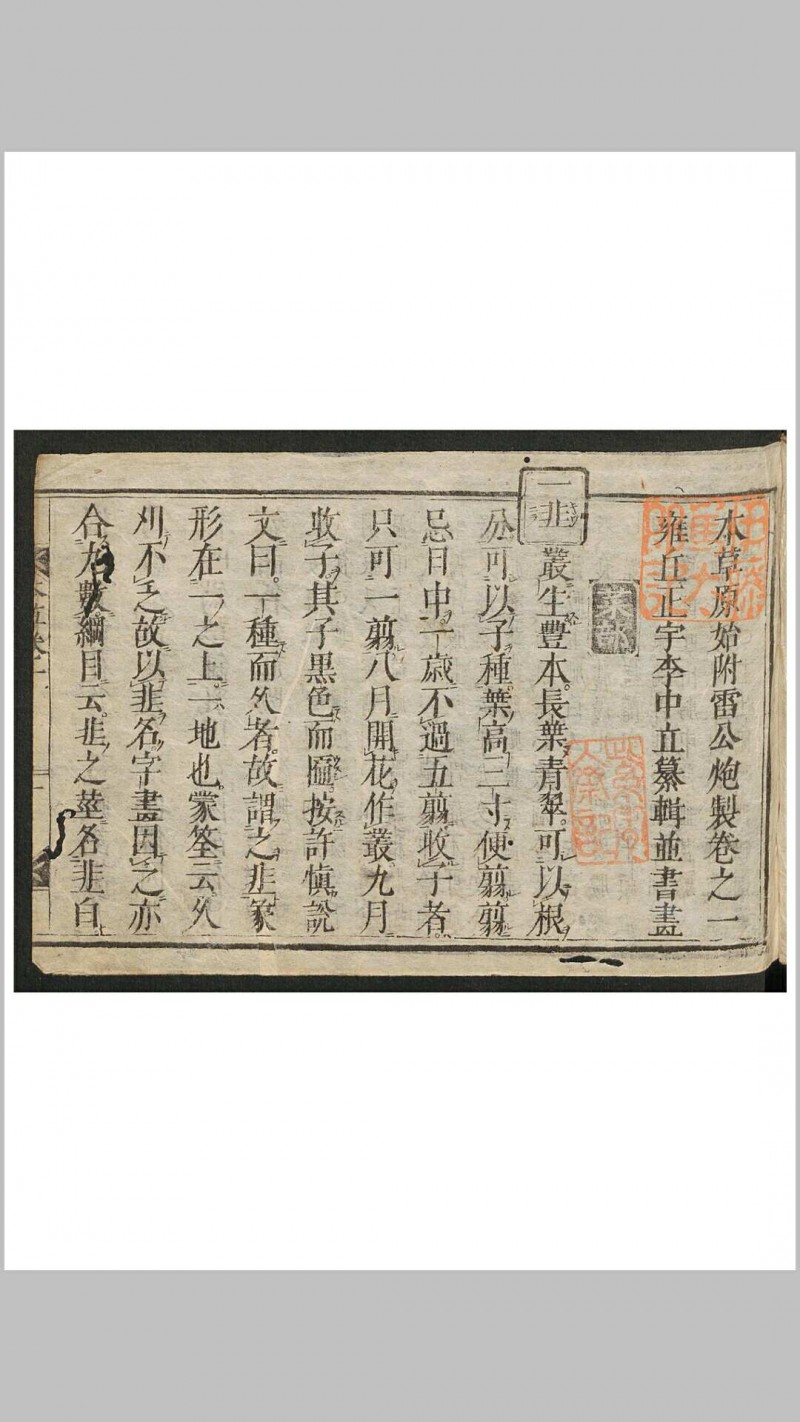 本草原始附雷公炮製卷之一
雍丘正宇李中立纂輯並書畫
菜部
一韭
叢生豐本長葉青翠可以根
分可以子種葉高三寸便翦翦
忌日中一歲不過五翦收子者
只可一翦八月開花作叢九月
收子其子黑色而匾按許慎說
文曰一種而久者故謂之韭篆
形在一之上一地也蒙筌云久
刈不乏故以韭名字畫因之亦
合九數綱目云韭之莖名韭白